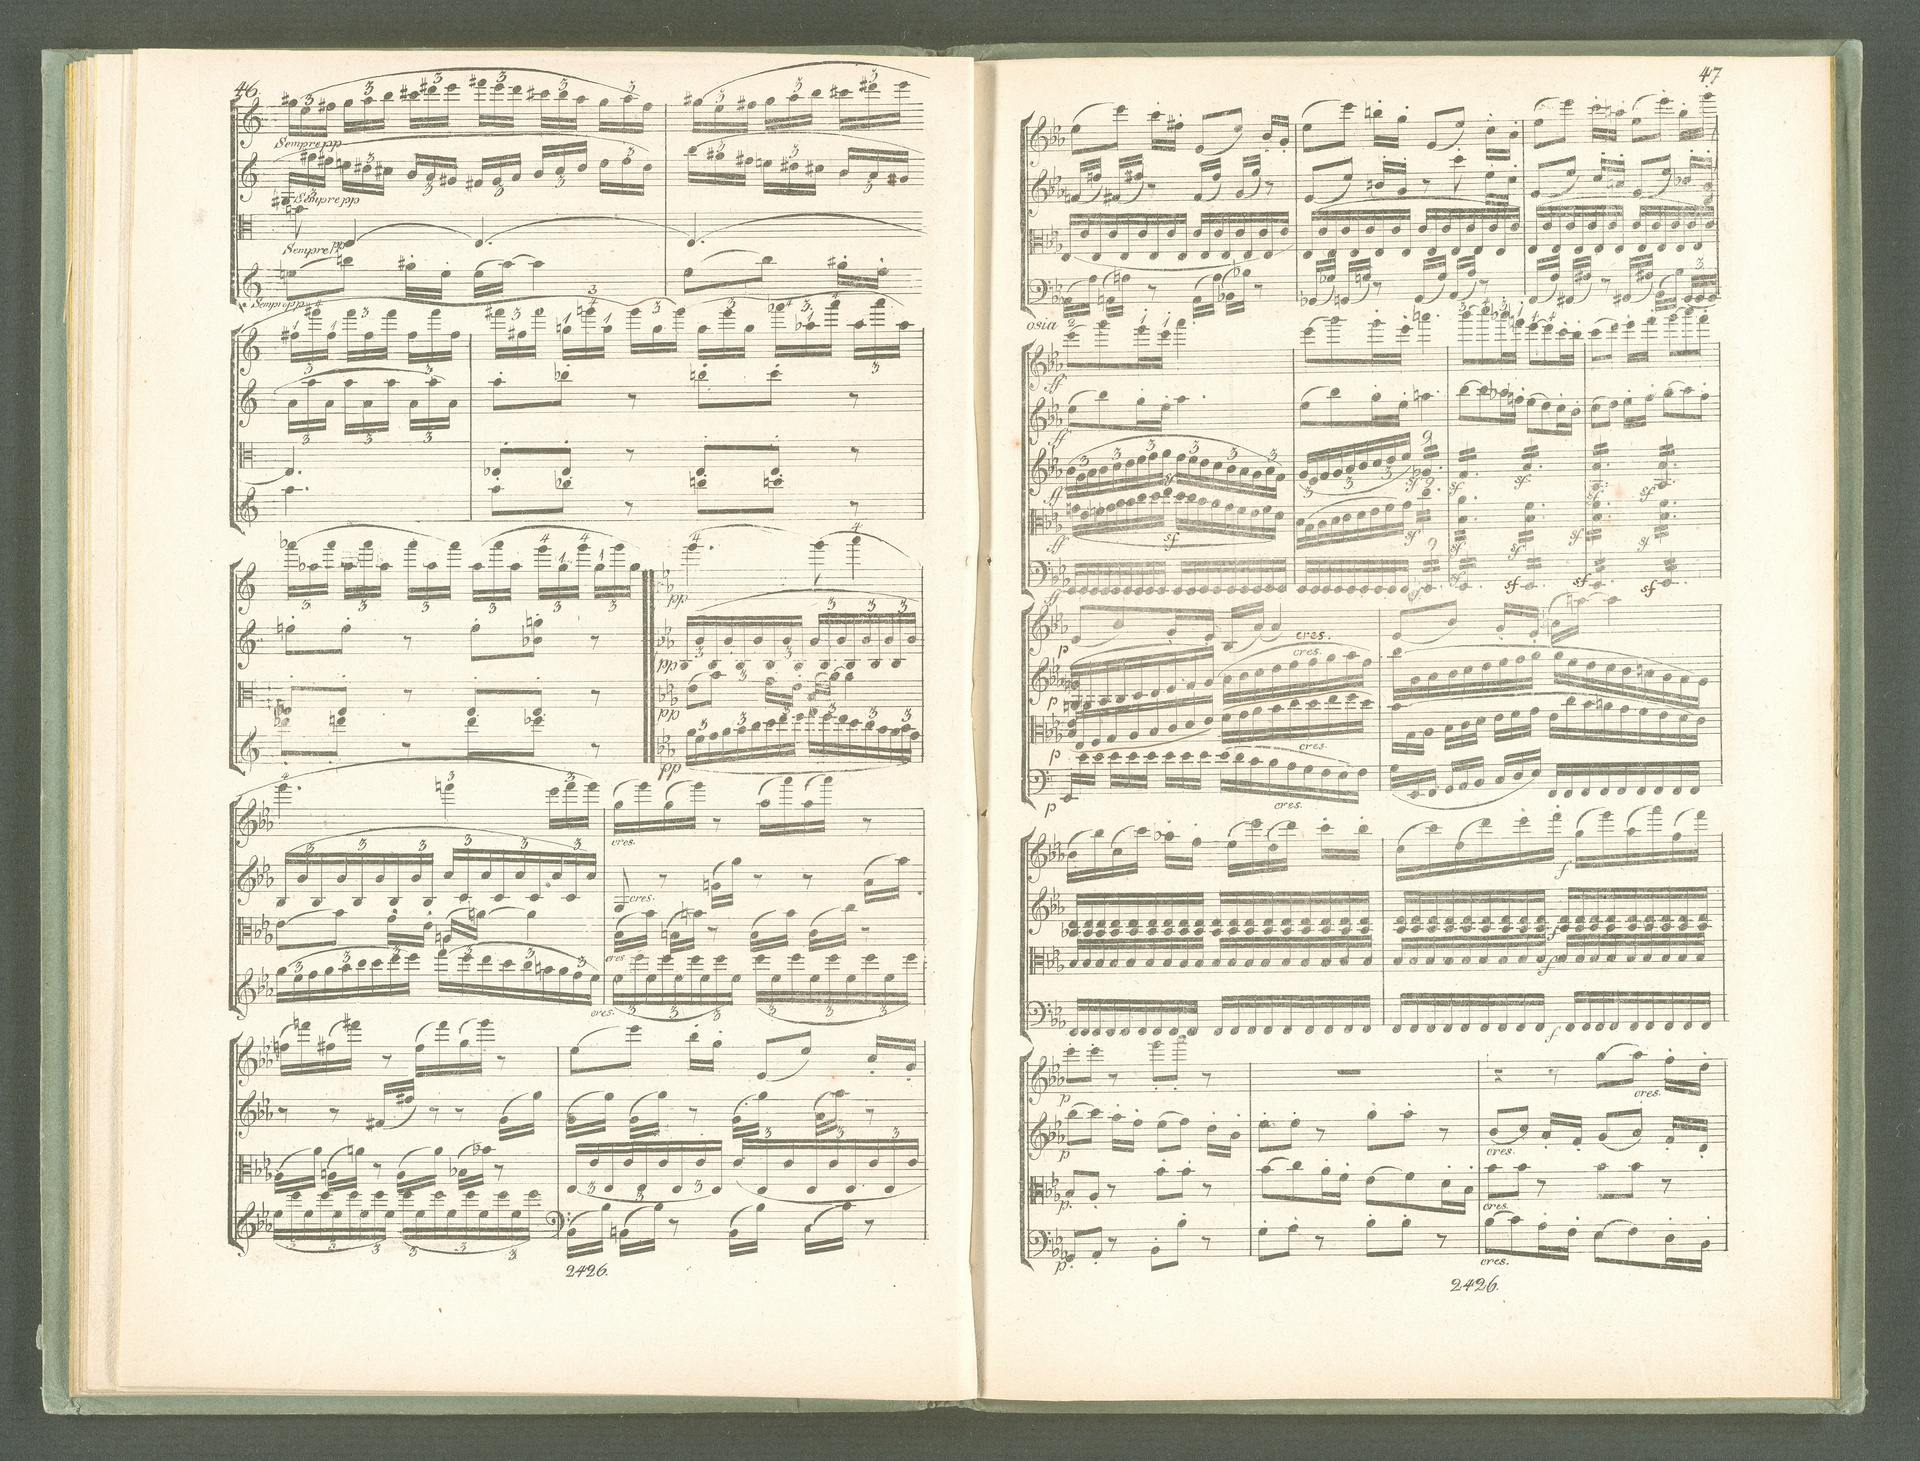 46.
Sempre pp
Sempre pp
Sempre pp
Sempre pp
pp
pp
pp
pp
cres.
cres.
cres.
cres.
2426.
47
osia
ff
ff
ff
ff
ff
sf
sf
sf
sf
sf
sf
sf
sf
sf
sf
sf
sf
sf
sf
p
cres.
cres.
p
p
cres.
p
cres.
f
f
f
f
p
cres.
p
cres.
p.
cres.
p.
cres.
2426.